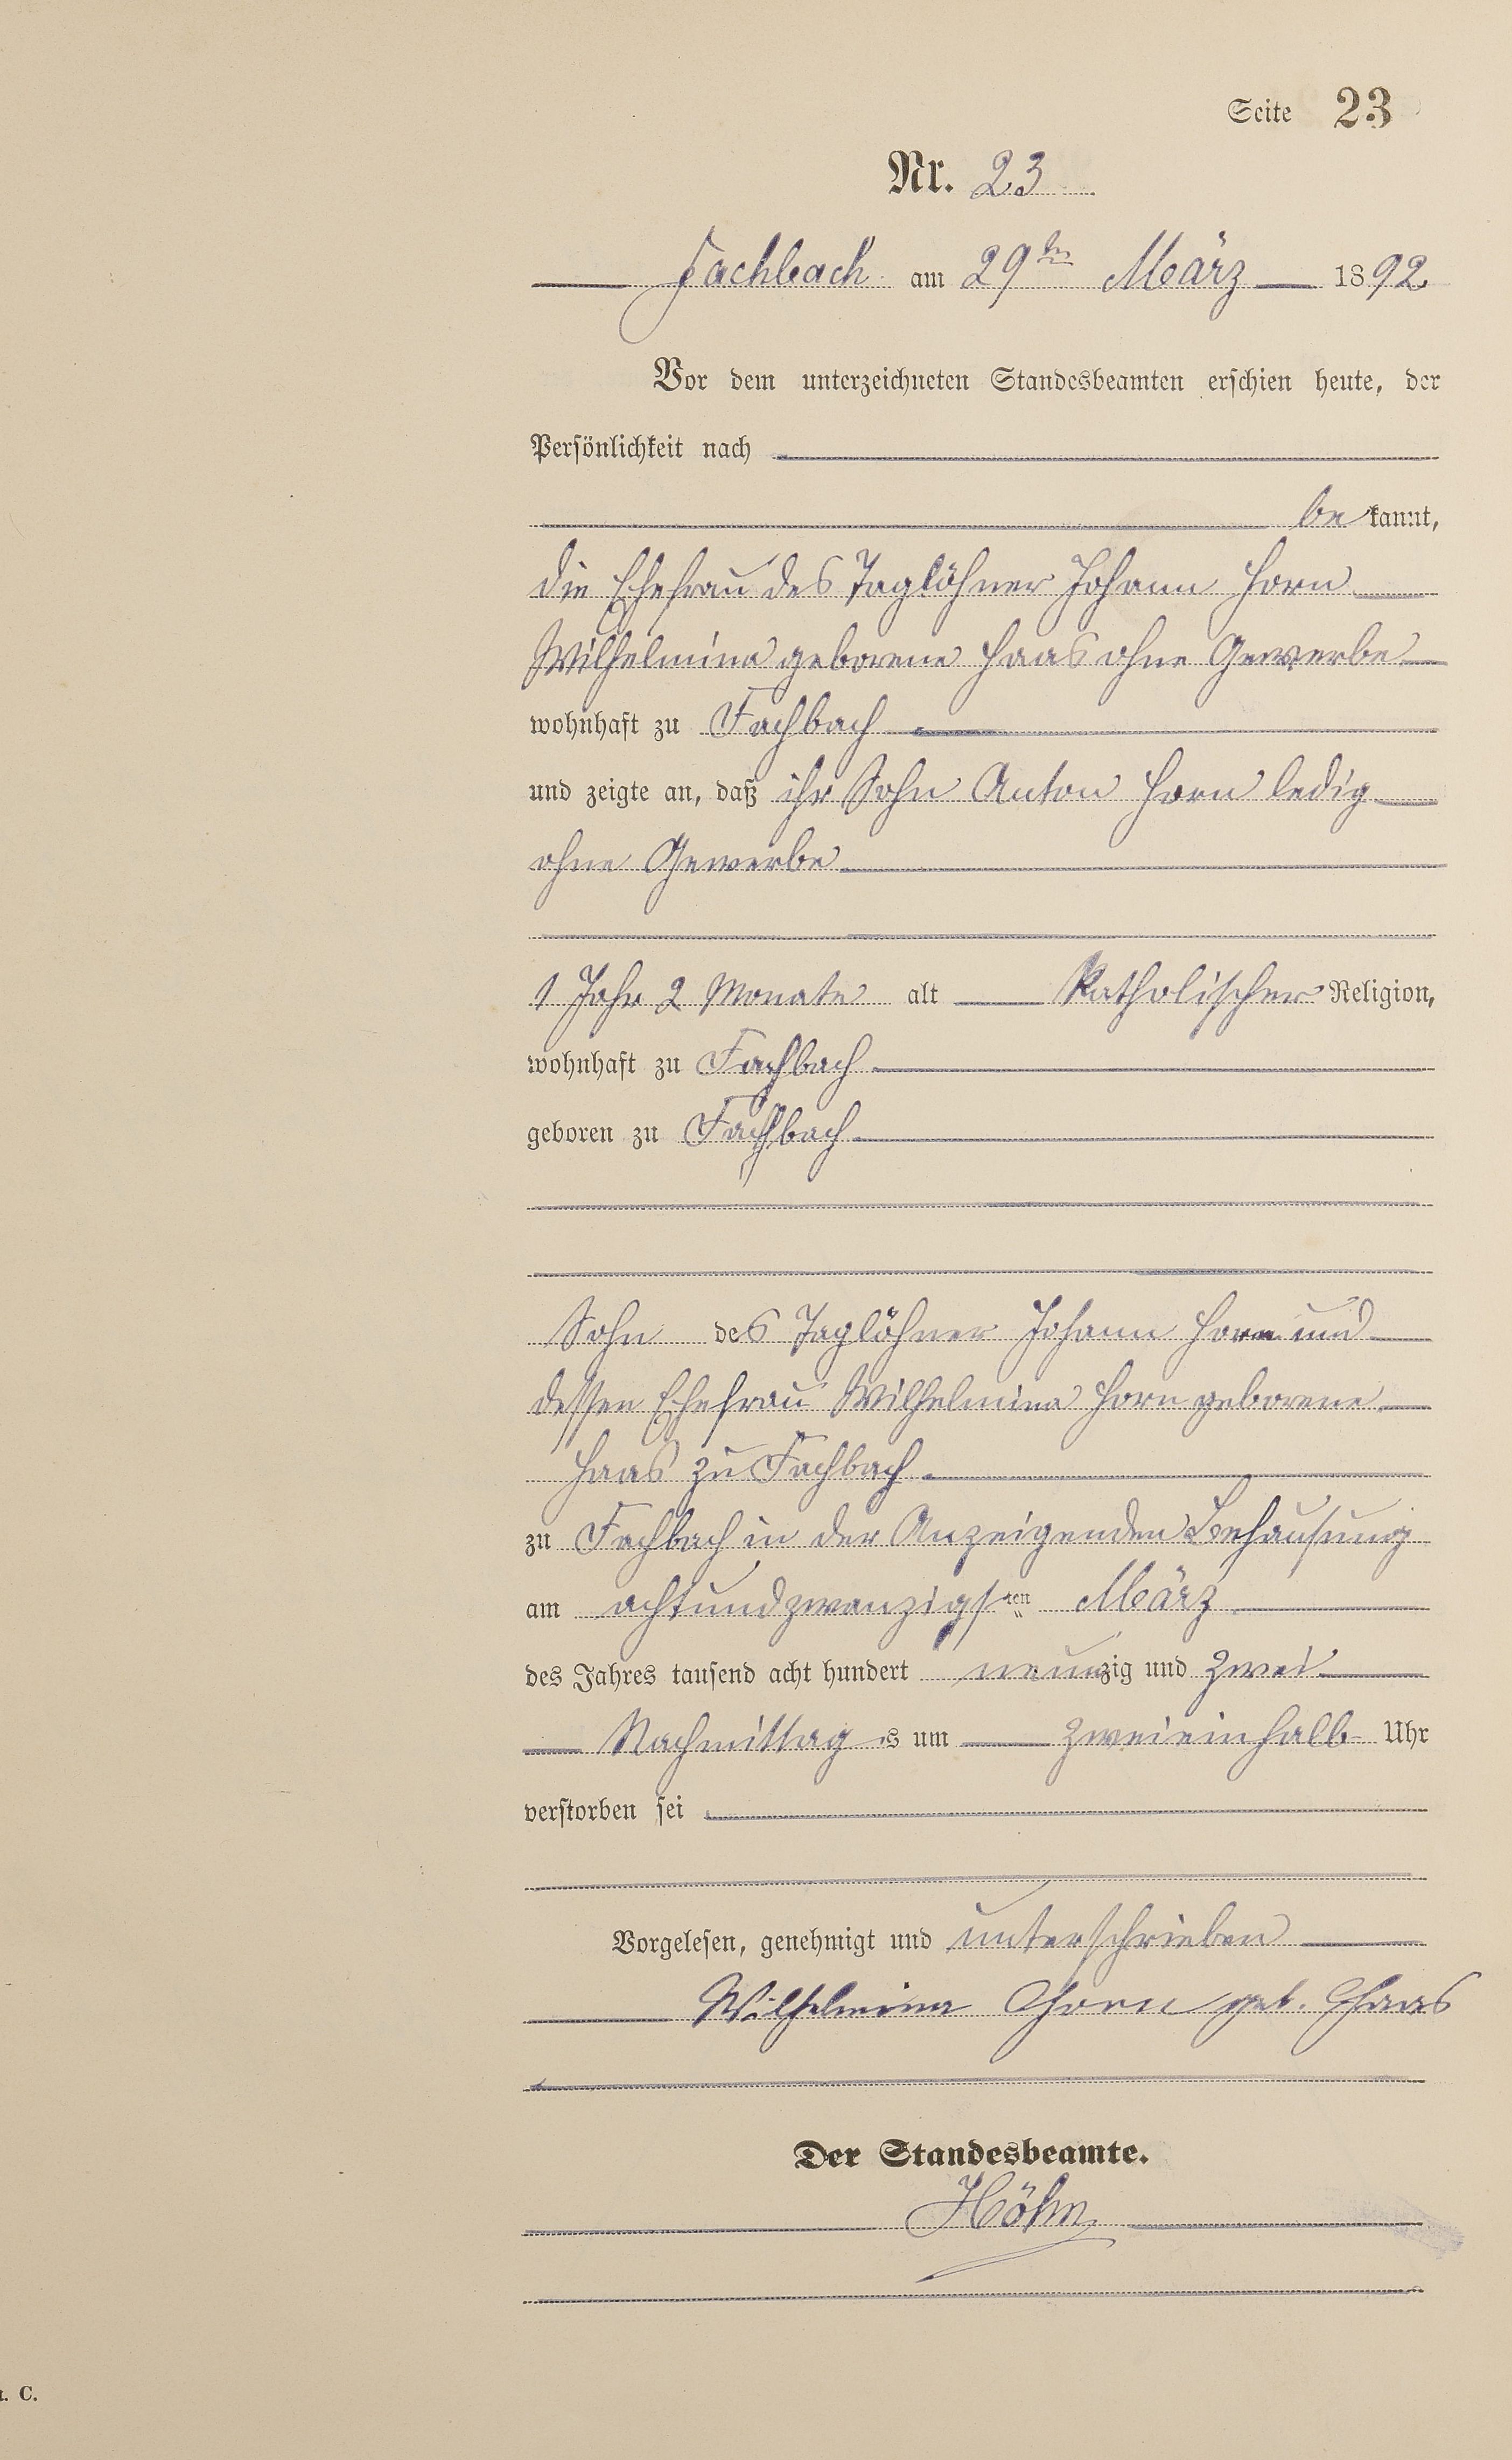 Seite 23
Nr. 23
Fachbach am 29ten März 1892
Vor dem unterzeichneten Standesbeamten erschien heute, der
Persönlichkeit nach
bekannt,
die Ehefrau des Taglöhner Johann Horn
Wilhelmina geborene Haas ohne Gewerbe
wohnhaft zu Fachbach
und zeigte an, daß ihr Sohn Anton Horn ledig
ohne Gewerbe
1 Jahr 2 Monate alt katholischer Religion,
wohnhaft zu Fachbach
geboren zu Fachbach
Sohn des Taglöhner Johann Horn und
dessen Ehefrau Wilhelmina Horn geborene
Haas zu Fachbach
zu Fachbach in der Anzeigenden Behausung
am achtundzwanzigsten März
des Jahres tausend acht hundert neunzig und zwei
Nachmittags um zweieinhalb Uhr
verstorben sei
Vorgelesen, genehmigt und unterschrieben
Wilhelmina Horn geb. Haas
Der Standesbeamte.
Höhn
. C.